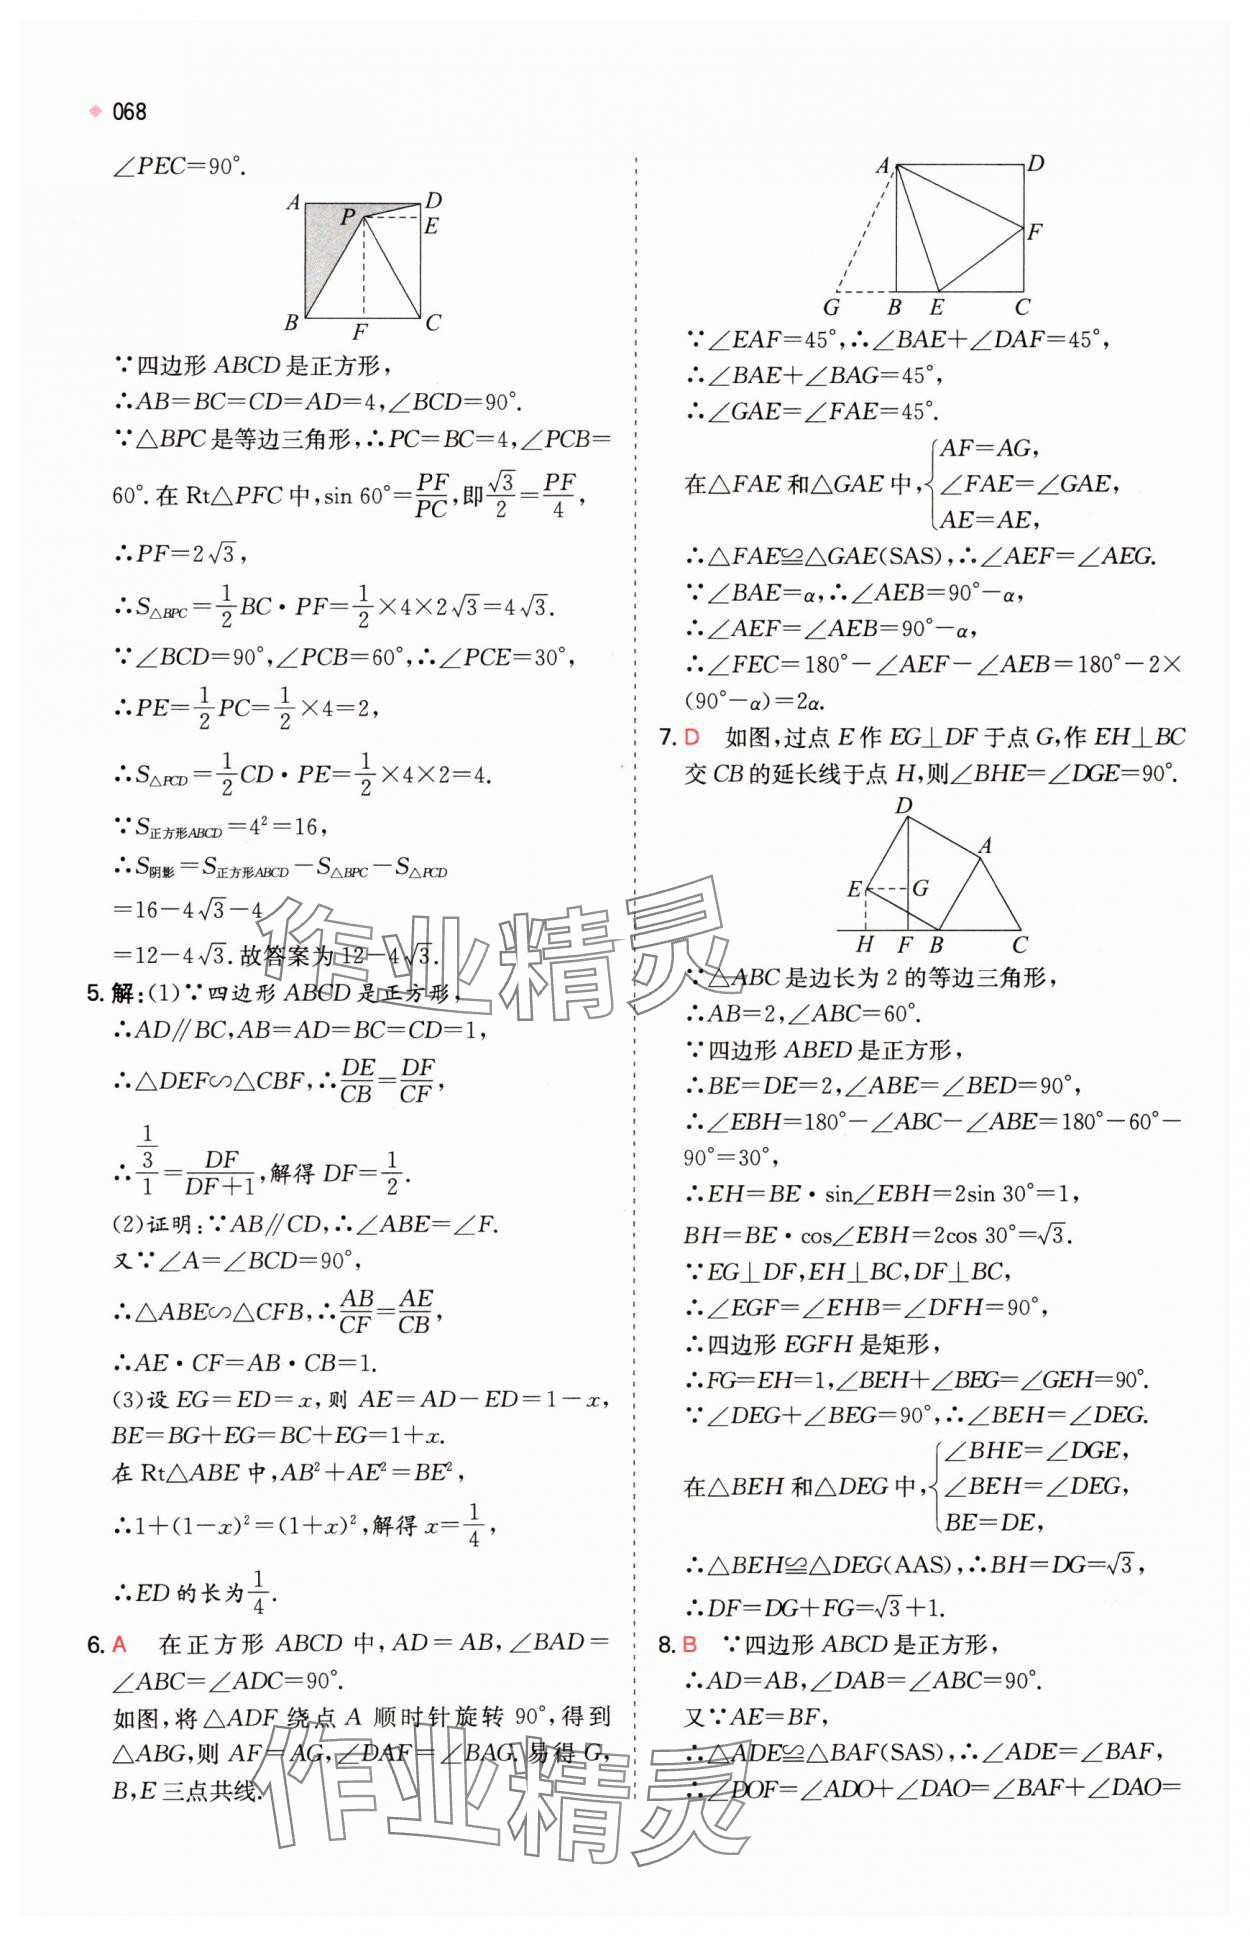 068
∠PEC=90°.
A D P E B F C
∵四边形 ABCD 是正方形,
∴AB=BC=CD=AD=4,∠BCD=90°.
∵△BPC 是等边三角形,∴PC=BC=4,∠PCB=
60°.在 Rt△PFC 中,sin 60°=PF/PC,即√3/2=PF/4,
∴PF=2√3,
∴S△BPC=1/2BC·PF=1/2×4×2√3=4√3.
∵∠BCD=90°,∠PCB=60°,∴∠PCE=30°,
∴PE=1/2PC=1/2×4=2,
∴S△PCD=1/2CD·PE=1/2×4×2=4.
∵S正方形ABCD=4²=16,
∴S阴影=S正方形ABCD-S△BPC-S△PCD
=16-4√3-4
=12-4√3.故答案为 12-4√3.
5. 解:(1)∵四边形 ABCD 是正方形,
∴AD∥BC,AB=AD=BC=CD=1,
∴△DEF∽△CBF,∴DE/CB=DF/CF,
∴(1/3)/1=DF/(DF+1),解得 DF=1/2.
(2)证明:∵AB∥CD,∴∠ABE=∠F.
又∵∠A=∠BCD=90°,
∴△ABE∽△CFB,∴AB/CF=AE/CB,
∴AE·CF=AB·CB=1.
(3)设 EG=ED=x,则 AE=AD-ED=1-x,
BE=BG+EG=BC+EG=1+x.
在 Rt△ABE 中,AB²+AE²=BE²,
∴1+(1-x)²=(1+x)²,解得 x=1/4,
∴ED 的长为1/4.
6. A 在正方形 ABCD 中,AD=AB,∠BAD=
∠ABC=∠ADC=90°.
如图,将△ADF 绕点 A 顺时针旋转 90°,得到
△ABG,则 AF=AG,∠DAF=∠BAG.易得 G,
B,E 三点共线.
A D F G B E C
∵∠EAF=45°,∴∠BAE+∠DAF=45°,
∴∠BAE+∠BAG=45°,
∴∠GAE=∠FAE=45°.
在△FAE 和△GAE 中,{AF=AG,
∠FAE=∠GAE,
AE=AE,
∴△FAE≌△GAE(SAS),∴∠AEF=∠AEG.
∵∠BAE=α,∴∠AEB=90°-α,
∴∠AEF=∠AEB=90°-α,
∴∠FEC=180°-∠AEF-∠AEB=180°-2×
(90°-α)=2α.
7. D 如图,过点 E 作 EG⊥DF 于点 G,作 EH⊥BC
交 CB 的延长线于点 H,则∠BHE=∠DGE=90°.
D A E G H F B C
∵△ABC 是边长为 2 的等边三角形,
∴AB=2,∠ABC=60°.
∵四边形 ABED 是正方形,
∴BE=DE=2,∠ABE=∠BED=90°,
∴∠EBH=180°-∠ABC-∠ABE=180°-60°-
90°=30°,
∴EH=BE·sin∠EBH=2sin 30°=1,
BH=BE·cos∠EBH=2cos 30°=√3.
∵EG⊥DF,EH⊥BC,DF⊥BC,
∴∠EGF=∠EHB=∠DFH=90°,
∴四边形 EGFH 是矩形,
∴FG=EH=1,∠BEH+∠BEG=∠GEH=90°.
∵∠DEG+∠BEG=90°,∴∠BEH=∠DEG.
在△BEH 和△DEG 中,{∠BHE=∠DGE,
∠BEH=∠DEG,
BE=DE,
∴△BEH≌△DEG(AAS),∴BH=DG=√3,
∴DF=DG+FG=√3+1.
8. B ∵四边形 ABCD 是正方形,
∴AD=AB,∠DAB=∠ABC=90°.
又∵AE=BF,
∴△ADE≌△BAF(SAS),∴∠ADE=∠BAF,
∴∠DOF=∠ADO+∠DAO=∠BAF+∠DAO=
作业精灵
作业精灵